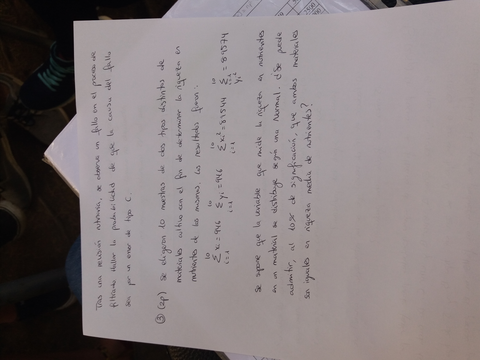 Tras una revisión rutinaria, se observa un fallo en el proceso de
filtrado. Hallar la probabilidad de que la causa del fallo
sea por un error de tipo C.
③ (2p) Se eligieron 10 muestras de dos tipos distintos de
materiales cultivo con el fin de determinar la riqueza en
nutrientes de los mismos. Los resultados fueron:
10 ∑ i=1 xi = 946 10 ∑ i=1 yi = 946 10 ∑ i=1 xi² = 89544 10 ∑ i=1 yi² = 89574
Se supone que la variable que mide la riqueza en nutrientes
en un material se distribuye según una Normal. ¿Se puede
admitir, al 100% de significación, que ambos materiales
son iguales en riqueza media de nutrientes?